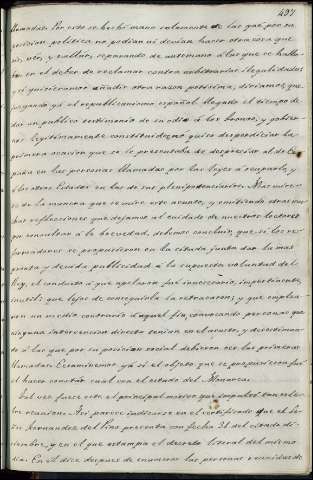 497
llamadas. Por esto se hechó mano solamente de las que por su
posicion politica no podian ni devian hacer otra cosa que
oir, ver, y callar, separando de antemano á las que se halla-
ban en el deber de reclamar contra arbitrarias ilegalidades
y si quisieramos añadir otra razon poderosa, diriamos que
juzgando ya el republicanismo español llegado el tiempo de
dar un publico testimonio de su odio á los tronos, y gobier-
nos legitimamente constituidos, no quiso desperdiciar la
primera ocasion que se le presentaba de despreciar al de Es-
paña en las personas llamadas por las leyes á ocuparlo, y
á los otros Estados en las de sus plenipotenciarios. Mas mire-
se de la manera que se mire este asunto, y omitiendo otras mu-
chas reflecciones que dejamos al cuidado de nuestros lectores
por consultar á la brevedad, debemos concluir, que si los re-
formadores se propusieron en la citada junta dar la mas
pronta y devida publicidad á la supuesta voluntad del
Rey, el conducto á que apelaron fué innecesario, impertinente,
inutil; que lejos de conseguirla la retracaron; y que emplea-
ron un medio contrario á aquel fin, convocando personas que
ninguna intervencion directa tenian en el asunto, y desestimando
á las que por su posicion social debieron ser las primeras
llamadas. Examinemos ya si el objeto que se propusieron fué
el hacer constar cual era el estado del Monarca.
Tal vez fuese este el principal motivo que impulsó tan estra-
ña reunion. Asi parece indicarse en el certificado que el Se-
ñor Fernandez del Pino presenta con fecha 31 del citado di-
ciembre, y en el que estampa el decreto literal del mismo
dia. En él dice despues de enumerar las personas reunidas de